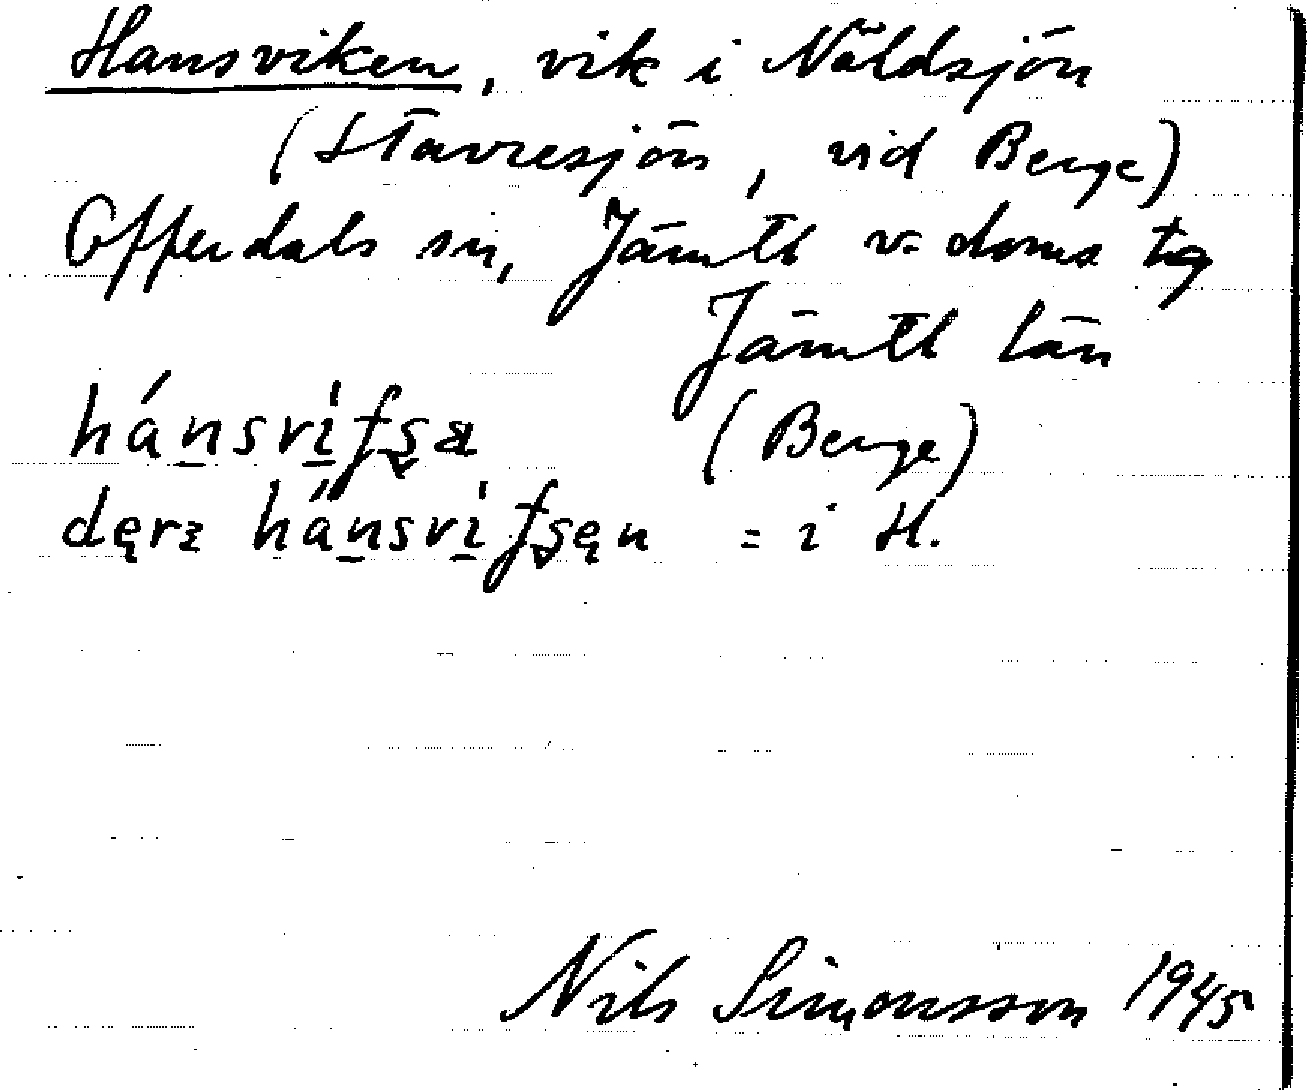 Hansviken, vik i Näldsjön
(Stavresjön, vid Berge)
Offerdals sn, Jämtl v. doms tg
Jämtl län
(Berge)
= i H.
Nils Simonsson 1945